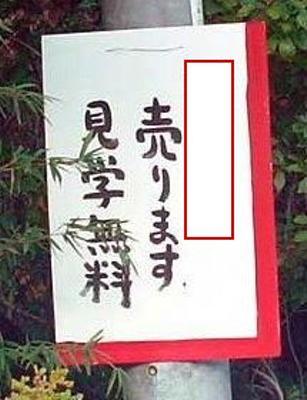 売ります
見学無料